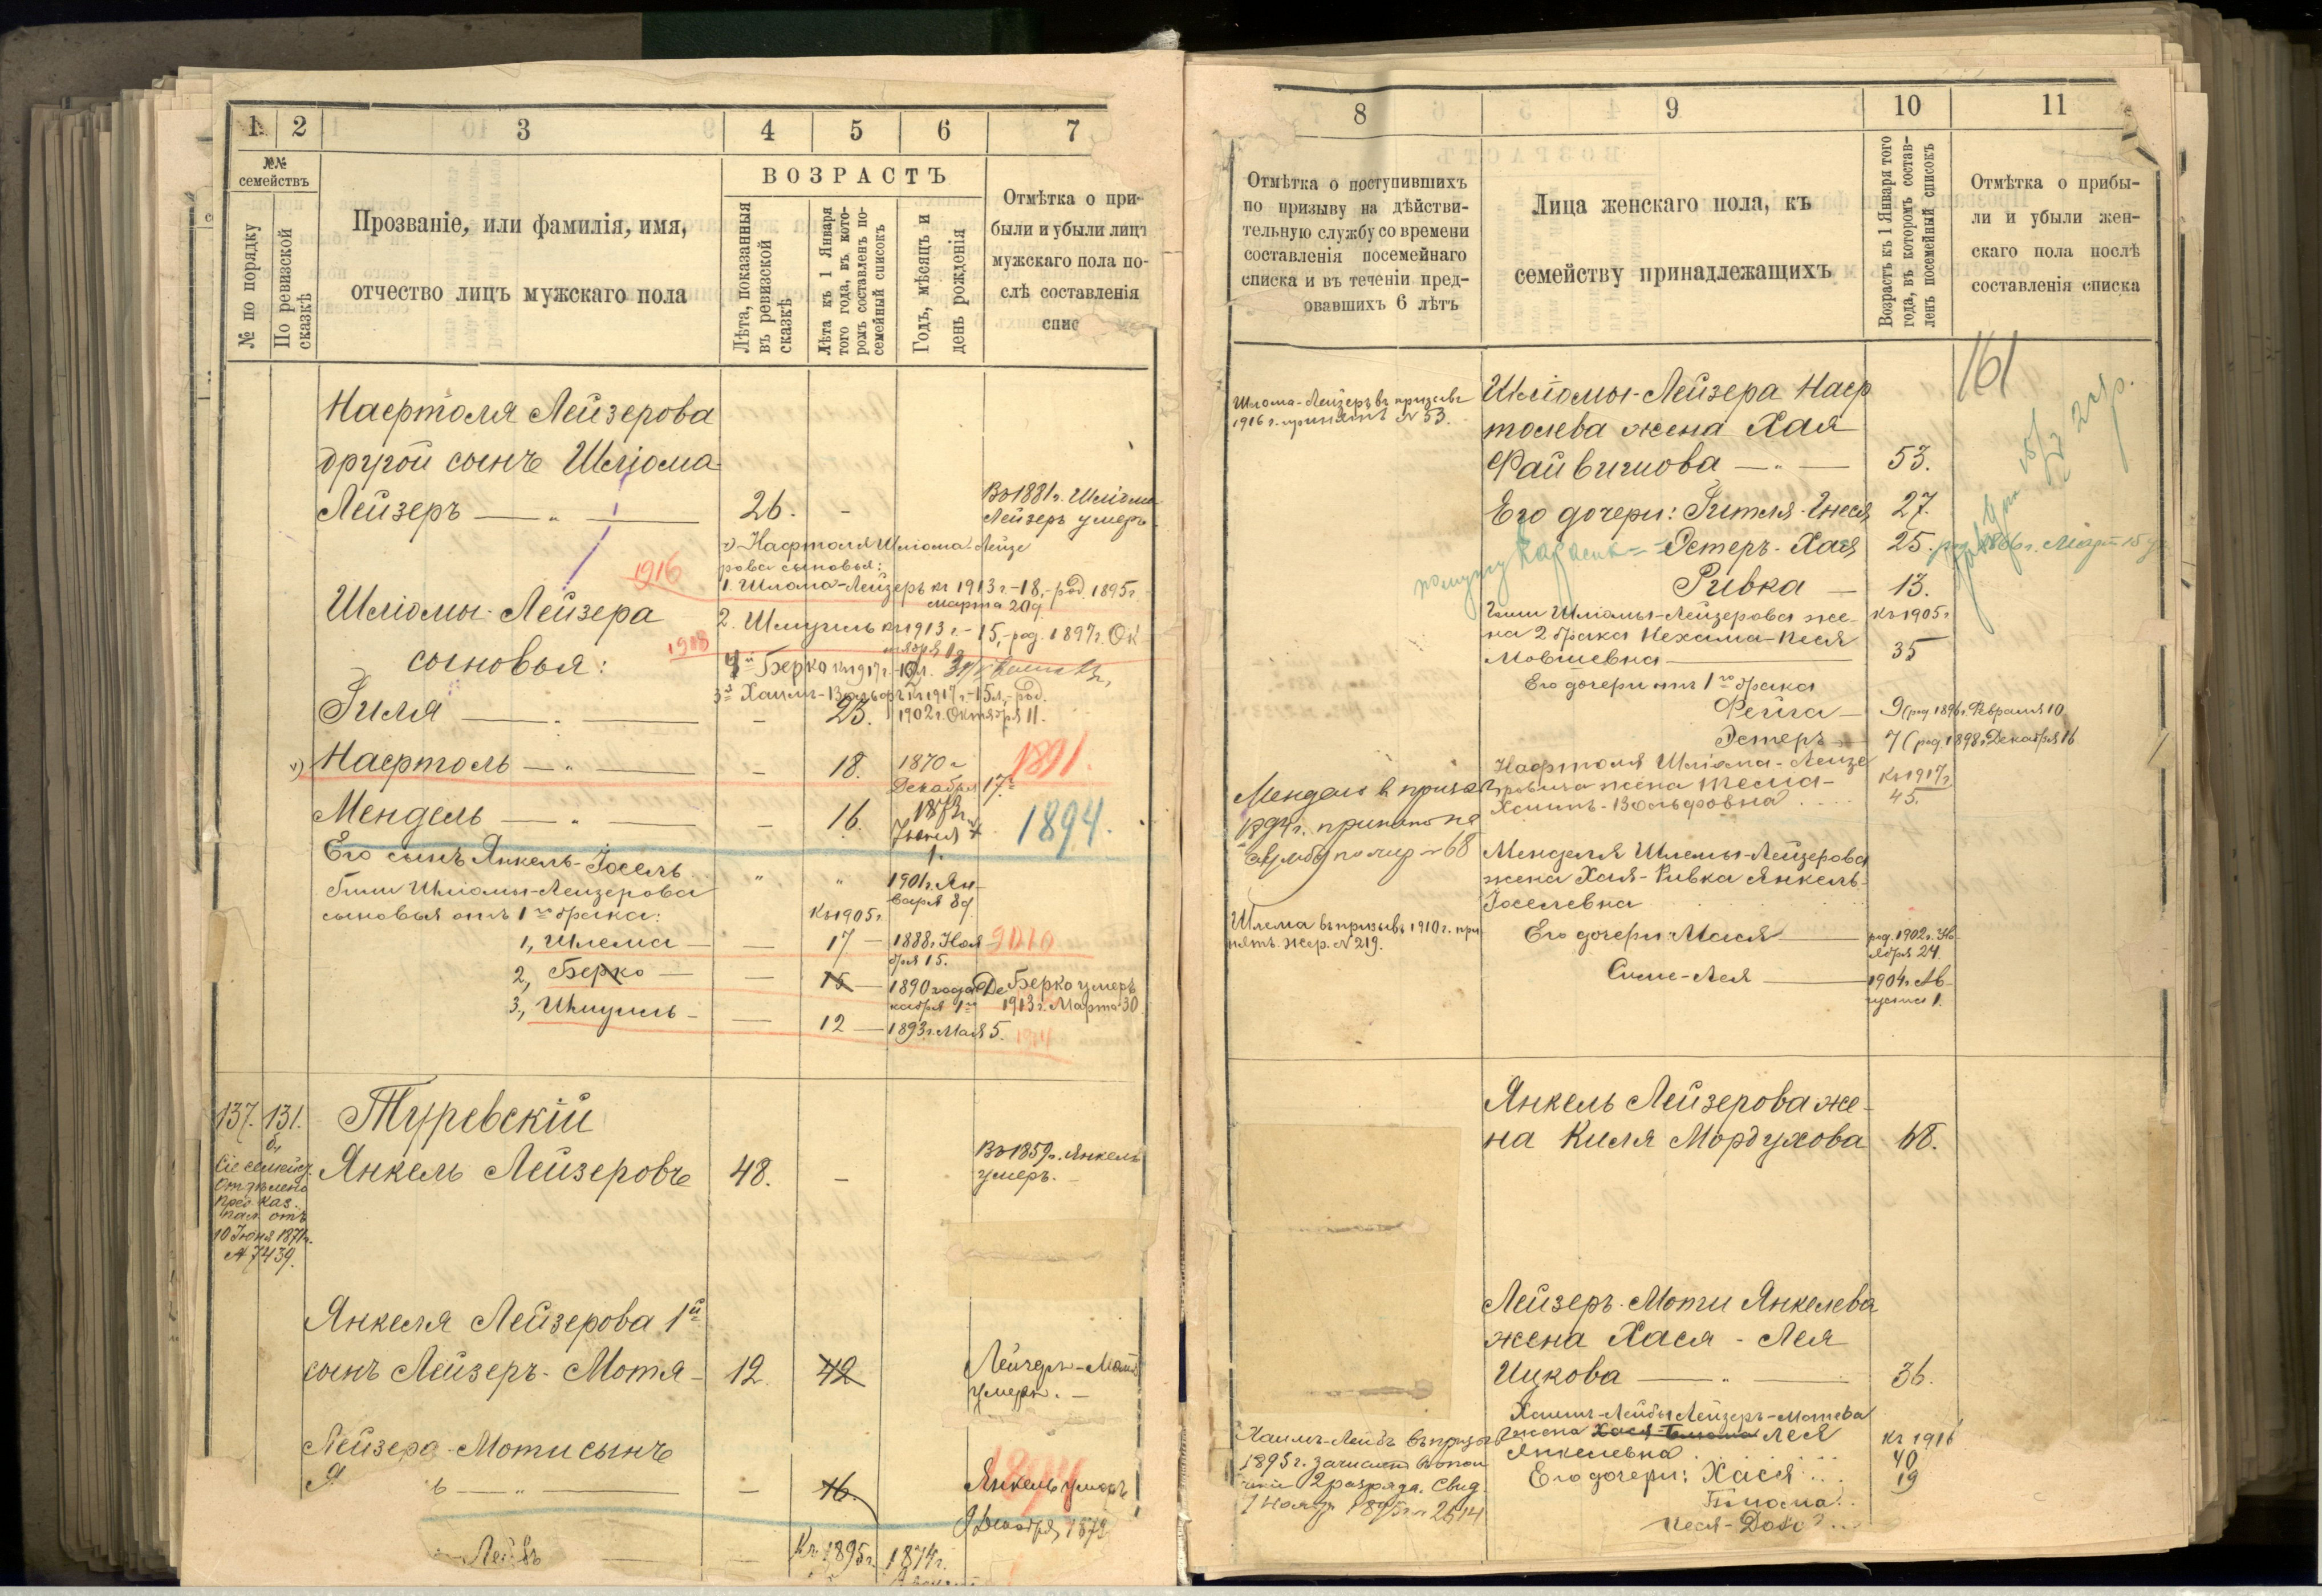 1 2 3 4 5 6 7
№№ семействъ
№ по порядку
По ревизской сказкѣ
Прозваніе, или фамилія, имя,
отчество лицъ мужскаго пола
ВОЗРАСТЪ
Лѣта, показанныя
въ ревизской
сказкѣ
Лѣта къ 1 Января
того года, въ кото-
ромъ составленъ по-
семейный списокъ
Годъ, мѣсяцъ и
день рожденія
Отмѣтка о при-
были и убыли лицъ
мужскаго пола по-
слѣ составленія
Нафтоля Лейзерова
другой сынъ Шліома-
Лейзеръ — 26. -
Въ 1881 г. Шліома
Лейзеръ умеръ
Нафтоля Шліома-Лейзе
рова сыновья:
1916
1. Шлома-Лейзеръ къ 1913 г.-18,-род. 1895 г.
марта 20 д.
2. Шмуиль къ 1913 г.-15,-род. 1897 г. Ок
1918
Шліомы-Лейзера
сыновья:
Берко къ 1917 г.
3й Хаимъ-Вольфъ къ 1917 г.-15 л., род.
1902 г. Октября 11.
Гиля — - 23.
Нафтоль — - 18. 1870 г. Декабря 17 1891.
Мендель — - 16. Іюня 1 1894.
Его сынъ Янкель-Іосель " " 1901 г. Ян-
варя 8 д
Гили Шліомы-Лейзерова
сыновья отъ 1го брака: Къ 1905 г.
1, Шлема — — 17 — 1888 г. Ноя
бря 15.
2, Берко — — 15 — 1890 года Де
кабря 1
Берко умеръ
1913 г. Марта 30
3, Шмуиль — — 12 — 1893 г. Мая 5. 1914
137. 131. Туревскій
б,
Сіе семейст.
отдѣлено
пред. каз.
пал. отъ
10 Іюня 1871 г.
№ 7439.
Янкель Лейзеровъ 48. -
Въ 1859 г. Янкель
умеръ.
Янкеля Лейзерова 1й
сынъ Лейзеръ-Мотя- 12. 42
Лейзеръ-Мотя
умеръ.
Лейзера-Моти сынъ
— - 16.
Янкель умеръ
1872
Лейбъ — Къ 1895 г. 1874 г.
8 9 10 11
Отмѣтка о поступившихъ
по призыву на дѣйстви-
тельную службу со времени
составленія посемейнаго
списка и въ теченіи пред-
овавшихъ 6 лѣтъ
Лица женскаго пола, къ
семейству принадлежащихъ
Возрастъ къ 1 Января того
года, въ которомъ состав-
ленъ посемейный списокъ
Отмѣтка о прибы-
ли и убыли жен-
скаго пола послѣ
составленія списка
161
Шлома-Лейзеръ въ призывъ
1916 г. принятъ № 53.
Шліомы-Лейзера Наф
толева жена Хая
Файвишова — 53.
Его дочери: Гитля-Гнеся 27.
по мужу Карасикъ Эстеръ-Хая 25. 1866 г. Март 15
Ривка — 13.
Гили Шліомы-Лейзерова же- Къ 1905 г
на 2 брака Нехама-Песя
Мовшевна — 35
Его дочери отъ 1го брака
Фейга — 9 (род 1896 г. Февраля 10
Эстеръ — 7 (род. 1898 г. Декабря 16
Нафтоля Шліома-Лейзе
ровича жена Къ 1917 г.
Хаимъ-Вольфовна 45.
Мендель въ призывъ
1894 г. принятъ на
службу по жер № 68
Менделя Шлемы-Лейзерова
жена Хая-Ривка Янкель-
Іоселевна
Шлема въ призывъ 1910 г. при
нятъ жер. № 219.
Его дочери: Мася — род. 1902 г. Но
ября 24.
Симе-Лея — 1904 г. Ав-
густа 1.
Янкель Лейзерова же-
на Киля Мордухова 68.
Лейзеръ-Моти Янкелева
жена Хася-Лея
Ицкова — 36.
Хаимъ-Лейбы Лейзеръ-Мотева
жена Лея Къ 1916
Янкелевна 40
Его дочери: Хася 19
Хаимъ-Лейбъ въ призывъ
1895 г. зачисленъ въ опол
ченіе 2 разряда. Свид.
1895 г. № 2614